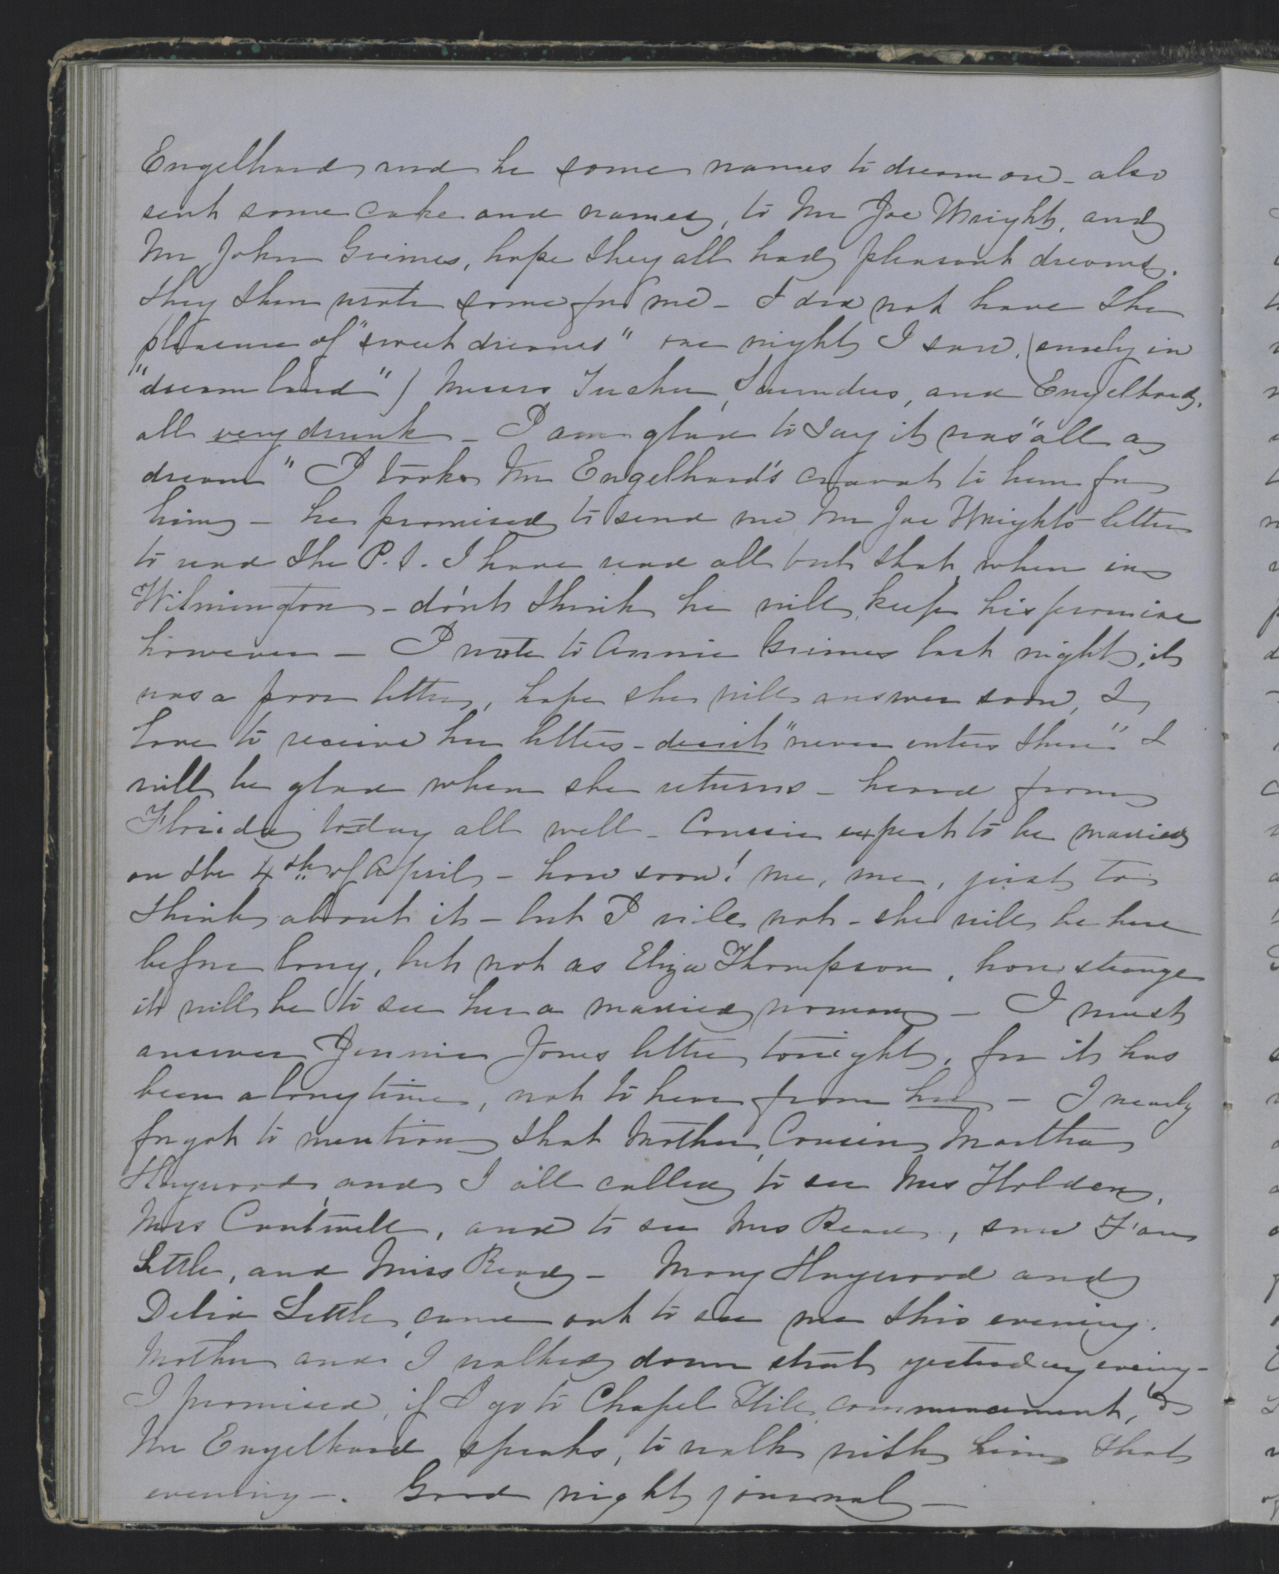 Engelhard and he some names to dream on - also
sent some cake and names, to Mr Joe Wright, and
Mr John Grimes, hope they all had pleasant dreams.
they then wrote some for me - I did not have the
pleasure of "sweet dreams" one night I saw, (surely in
"dream land") Messrs Tucker, Saunders, and Engelhard,
all very drunk - I am glad to say it was "all a
dream" I took Mr Engelhard's cravat to hem for
him - he promised to send me Mr Joe Wrights letter
to read the P.S. I have read all but that, when in
Wilmington - don't think he will keep his promise
however - I wrote to Annie Grimes last night, it
was a poor letter, hope she will answer soon, I
love to receive her letters - deceit "never enters there" I
will be glad when she returns - heard from
Florida today all well - Cousin expect to be married
on the 4th of April - how soon! me, me, just to
think about it - but I will not - she will be here
before long, but not as Eliza Thompson, how strange
it will be to see her a married woman - I must
answer Jennie Jones letter tonight, for it has
been a long time, not to hear from her - I nearly
forgot to mention that Mother, Cousin Martha
Haywood, and I all called to see Mrs Holden,
Miss Cantwell, and to see Mrs Read, saw Fan
Little, and Miss Read - Mary Haywood and
Delia Little, came out to see me this evening.
Mother and I walked down street yesterday evening -
I promised, if I go to Chapel Hill commencement, &
Mr Engelhard speaks, to walk with him that
evening -. Good night journal -